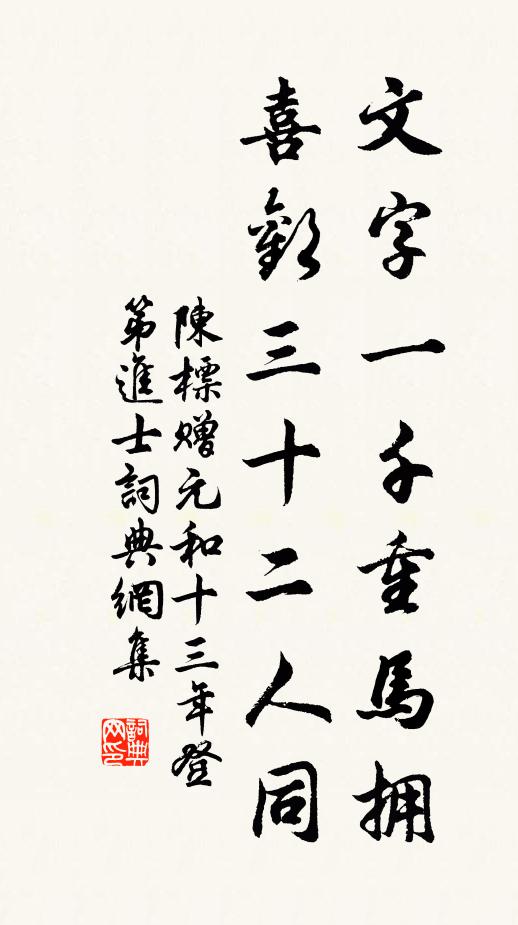 文字一千重馬擁
喜歡三十二人同
陳標贈元和十三年登
第進士詞典網集
詞典
网印